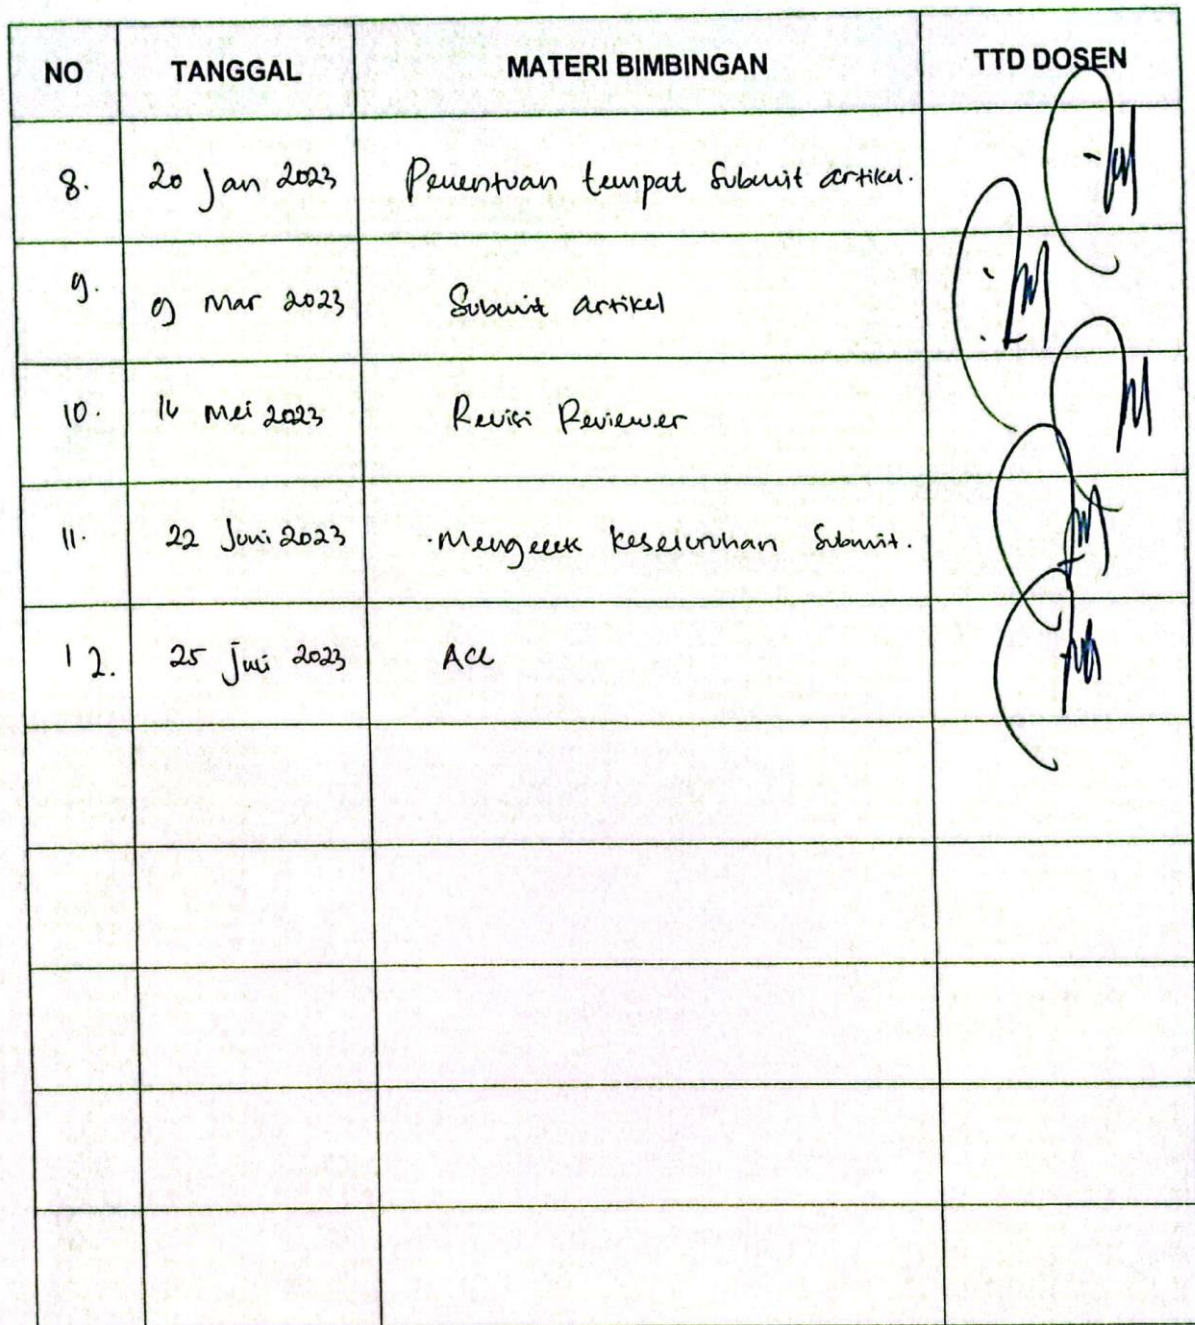 NO TANGGAL MATERI BIMBINGAN TTD DOSEN
8. 20 Jan 2023 Penentuan tempat Submit artikel.
9. 09 Mar 2023 Submit artikel
10. 16 Mei 2023 Revisi Reviewer
11. 22 Juni 2023 Mengecek keseluruhan Submit.
12. 25 2023 Acc